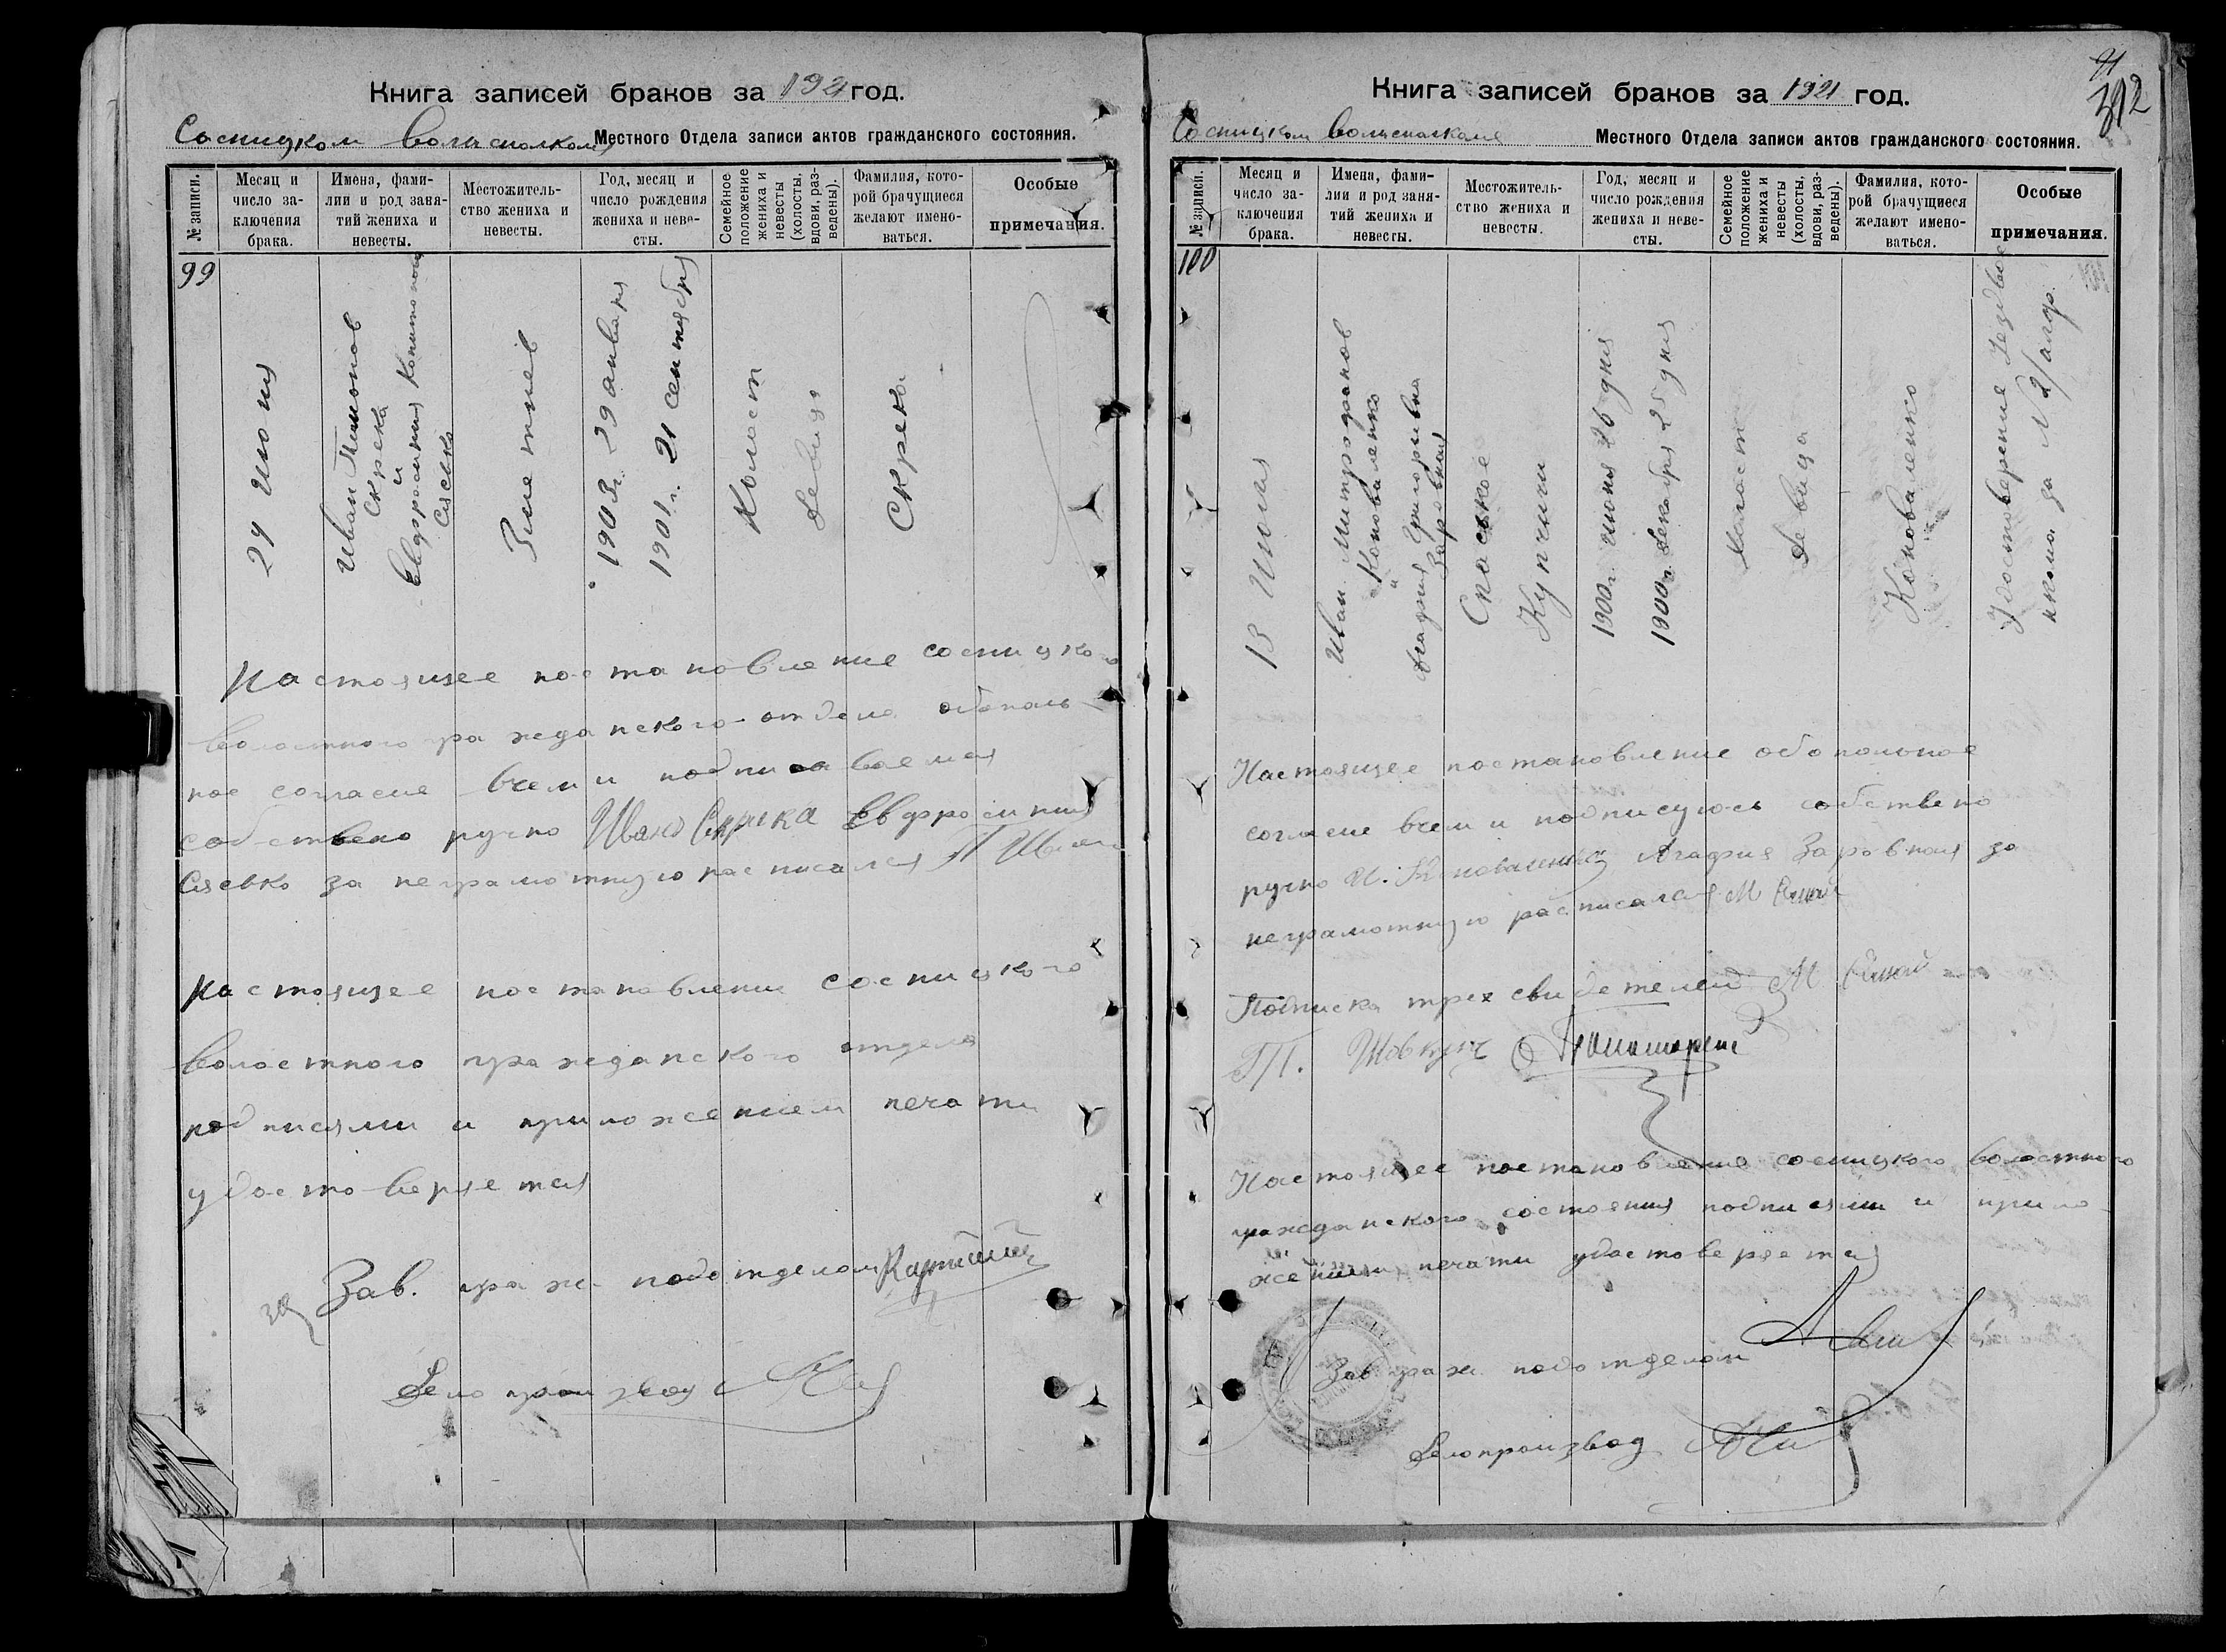 Книга записей браков за 1921 год.
Сосницком волисполкоме Местного Отдела записи актов гражданского состояния.
№ записи.
Месяц и число заключения брака.
Имена, фамилии и род занятий жениха и невесты.
Местожительство жениха и невесты.
Год, месяц и число рождения жениха и невесты.
Семейное положение жениха и невесты (холосты, вдовы, разведены).
Фамилия, которой брачущиеся желают именоваться.
Особые примечания.
99
Июня
Иван
Скрека
и
Евфросиния
Сисько
1903 г. 29 января
1901 г. 21 сентября
Холост
Девица
Скрека
Настоящее постановление сосницкого
волостного гражданского отдела обополь
ное согласие всеми подписаваемся
собствено ручно Иван Скрика Евфросиния
за неграмотную расписался
Настоящее постановление сосницкого
волостного гражданского отдела
подписями и приложением печати
удостоверяется
Зав. граж. подотделом
Делопроизвод
91
312
Книга записей браков за 1921 год.
Сосницком волисполкоме Местного Отдела записи актов гражданского состояния.
№ записи.
Месяц и число заключения брака.
Имена, фамилии и род занятий жениха и невесты.
Местожительство жениха и невесты.
Год, месяц и число рождения жениха и невесты.
Семейное положение жениха и невесты (холосты, вдовы, разведены).
Фамилия, которой брачущиеся желают именоваться.
Особые примечания.
100
13 Июля
Иван Митрофанов
Коноваленко
и
Агафия Григорьевна
Заровная
Спаское
Купчичи
1900 г. июня 26 дня
1900 г. декабря 25 дня
Холост
Девица
Коноваленко
Удостверение
за № 2
Настоящее постановление обопольное
согласие всеми подписуюсь собствено
ручно И. Коноваленко Агафия Заровная за
неграмотную расписался М
Подписка трех свидетелей М
П. Шовкун
Настоящее постановление сосницкого волостного
гражданского состояния подписями и прило
жением печати удостоверяется
Зав граж подотделом
Делопроизвод